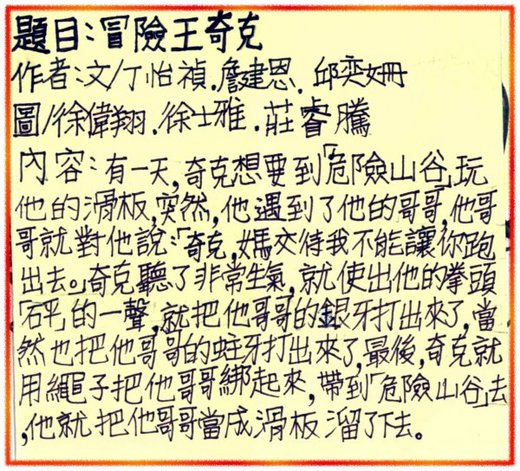 題目:冒險王奇克
作者:文/丁怡禎.詹建恩.邱奕姍
圖/徐偉翔.徐士雅.莊睿騰
內容:有一天,奇克想要到「危險山谷」玩
他的滑板,突然,他遇到了他的哥哥,他哥
哥就對他說:「奇克,媽交待我不能讓你跑
出去。」奇克聽了非常生氣,就使出他的拳頭
「砰」的一聲,就把他哥哥的銀牙打出來了,當
然也把他哥哥的蛀牙打出來了,最後,奇克就
用繩子把他哥哥綁起來,帶到「危險山谷」去
,他就把他哥哥當成滑板溜了下去。